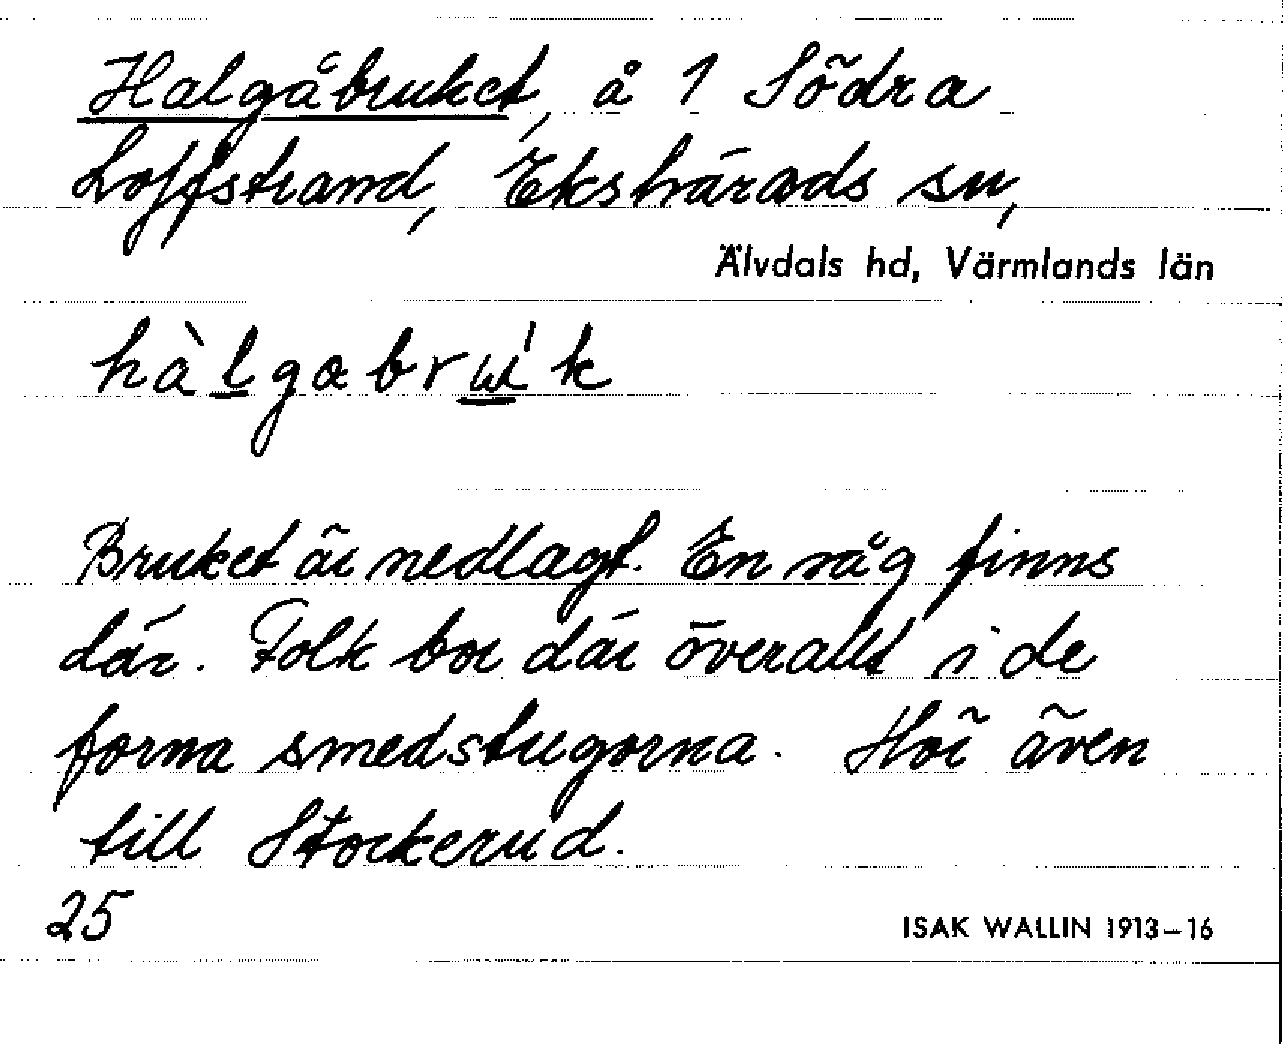 Halgåbruket, å 1 Södra
Loffstrand, Ekshärads sn,
Älvdals hd, Värmlands län
hàlgabruʹk
Bruket är nedlagt. En såg finns
där. Folk bor där överallt i de
forna smedstugorna. Hör även
till Stockerud.
25
ISAK WALLIN 1913–16